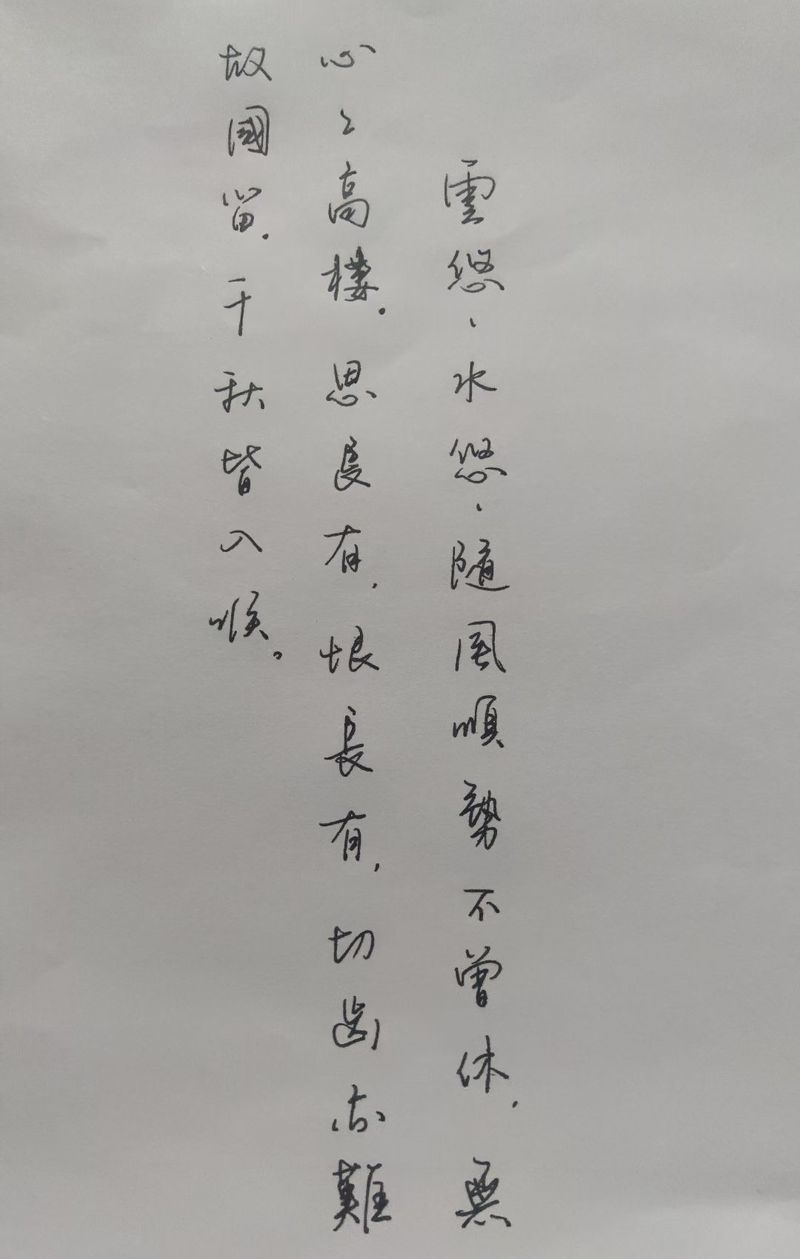 雲悠、水悠、隨風順勢不曾休，無
心々高樓。思長有，恨長有，切齒亦難
故國留，千秋皆入喉。